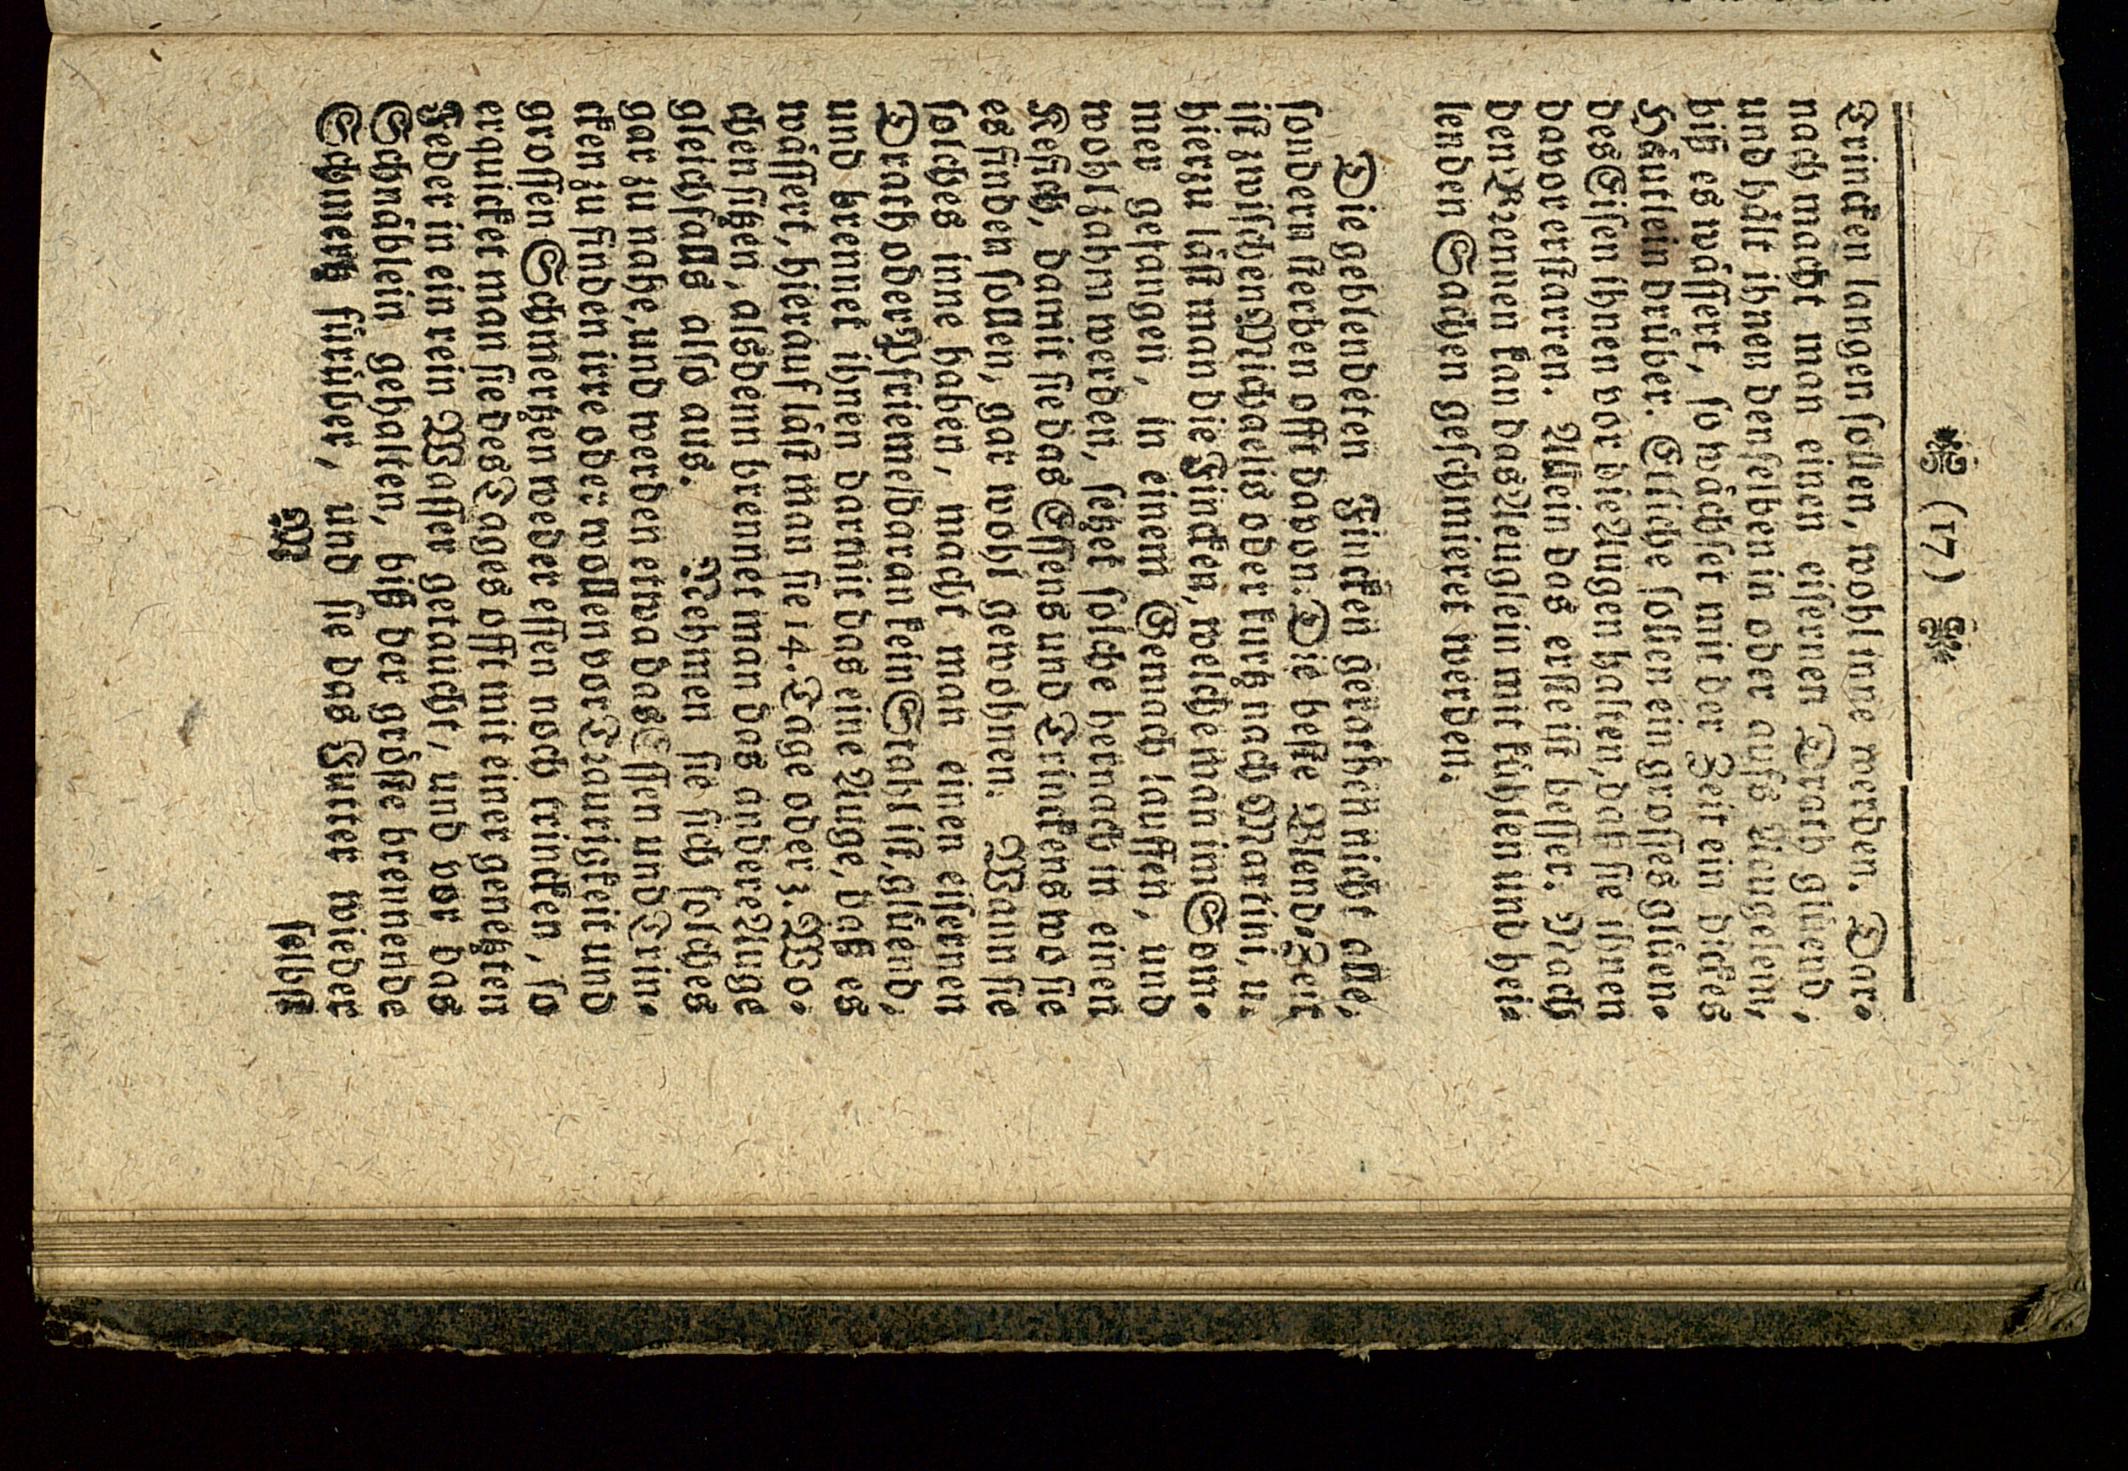 (17)
Trincken langen sollen, wohl inne werden. Dar-
nach macht man einen eisernen Drath glüend,
und hält ihnen denselben in oder aufs Äeugelein,
biß es wässert, so wächset mit der Zeit ein dickes
Häutlein drüber. Etliche sollen ein grosses glüen-
des Eisen ihnen vor die Augen halten, daß sie ihnen
davor erstarren. Allein das erste ist besser. Nach
den Brennen kan das Aeuglein mit kühlen und hei-
lenden Sachen geschmieret werden.
Die geblendeten Fincken gerathen nicht alle,
sondern sterben offt davon. Die beste Blend-Zeit
ist zwischen Michaelis oder kurtz nach Martini, u.
hierzu läst man die Fincken, welche man im Som-
mer gefangen, in einem Gemach lauffen, und
wohl zahm werden, setzet solche hernach in einen
Kefich, damit sie das Essens und Trinckens wo sie
es finden sollen, gar wohl gewohnen. Wann sie
solches inne haben, macht man einen eisernen
Drath oder Pfrieme/daran kein Stahl ist, glüend,
und brennet ihnen darmit das eine Auge, daß es
wässert, hierauf läst man sie 14. Tage oder 3. Wo-
chen sitzen, alsdenn brennet man das andere Auge
gleichfalls also aus. Nehmen sie sich solches
gar zu nahe, und werden etwa das Essen und Trin-
cken zu finden irre oder wollen vor Traurigkeit und
grossen Schmertzen weder essen noch trincken, so
erquicket man sie des Tages offt mit einer genetzten
Feder in ein rein Wasser getaucht, und vor das
Schnäblein gehalten, biß der gröste brennende
Schmertz fürüber, und sie das Futter wieder
B selbst